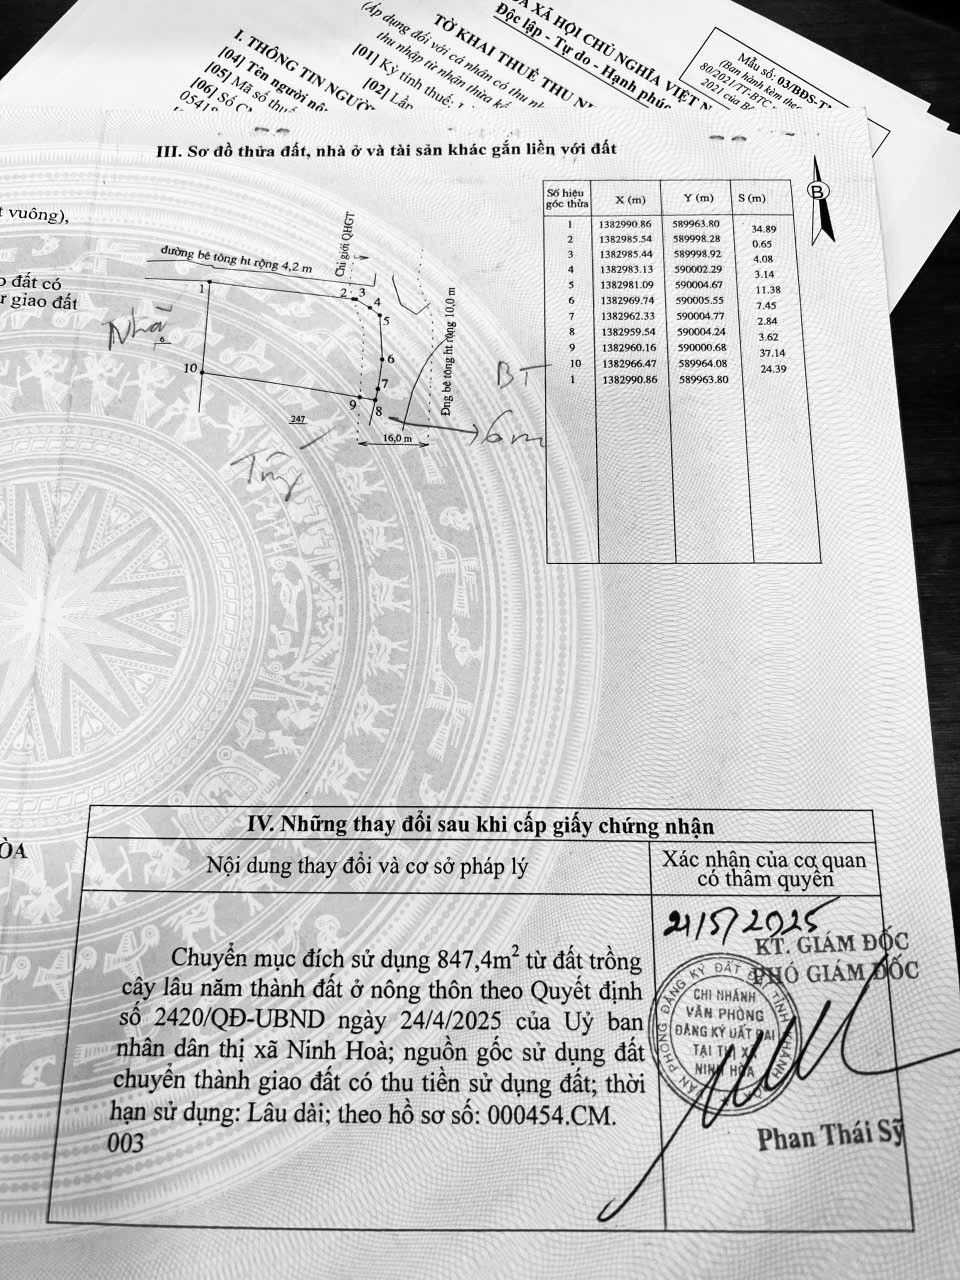 A XÃ HỘI CHỦ NGHĨA VIỆT N
Độc lập - Tự do - Hạnh phúc
Mẫu số: 03/BĐS-T
(Ban hành kèm theo
80/2021/TT-BTC
2021 của B
TỜ KHAI THUẾ THU N
(Áp dụng đối với cá nhân có thu nh
thu nhập từ nhận thừa kế
[01] Kỳ tính thuế:
[02] Lần
I. THÔNG TIN NGƯỜ
[04] Tên người nộ
[05] Mã số thuế
[06] Số C
05418
III. Sơ đồ thửa đất, nhà ở và tài sản khác gắn liền với đất
t vuông),
o đất có
r giao đất
B
đường bê tông ht rộng 4,2 m
Chỉ giới QHGT
Đng bê tông ht rộng 10,0 m
1
2 3
4
5
6
7
8
9
10
6
247
16,0 m
Nhà
Tây
BT
6m
Số hiệu góc thửa X (m) Y (m) S (m)
1 1382990.86 589963.80
34.89
2 1382985.54 589998.28
0.65
3 1382985.44 589998.92
4.08
4 1382983.13 590002.29
3.14
5 1382981.09 590004.67
11.38
6 1382969.74 590005.55
7.45
7 1382962.33 590004.77
2.84
8 1382959.54 590004.24
3.62
9 1382960.16 590000.68
37.14
10 1382966.47 589964.08
24.39
1 1382990.86 589963.80
ÒA
IV. Những thay đổi sau khi cấp giấy chứng nhận
Nội dung thay đổi và cơ sở pháp lý
Xác nhận của cơ quan
có thẩm quyền
Chuyển mục đích sử dụng 847,4m² từ đất trồng
cây lâu năm thành đất ở nông thôn theo Quyết định
số 2420/QĐ-UBND ngày 24/4/2025 của Uỷ ban
nhân dân thị xã Ninh Hoà; nguồn gốc sử dụng đất
chuyển thành giao đất có thu tiền sử dụng đất; thời
hạn sử dụng: Lâu dài; theo hồ sơ số: 000454.CM.
003
21/5/2025
KT. GIÁM ĐỐC
PHÓ GIÁM ĐỐC
VĂN PHÒNG ĐĂNG KÝ ĐẤT ĐAI TỈNH KHÁNH HÒA
CHI NHÁNH
VĂN PHÒNG
ĐĂNG KÝ ĐẤT ĐAI
TẠI THỊ XÃ
NINH HÒA
Phan Thái Sỹ